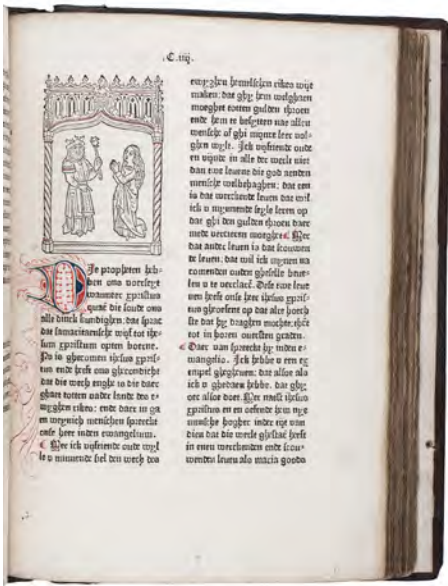 .C.iiij.
Die propheten heb
ben ons voerseyt
wanneer xpristus
quaē die soude ons
alle dinck kundighen: dat sprac
dat samaritaensche wijf tot ihe
sum xpristum opten borne.
Nu is ghecomen ihesus xpris
tus ende heeft ons ghecondicht
dat die wech enghe is die daer
ghaet totten vader lande des e
wyghen rikes: ende daer in ga
en weynich menschen spreeckt
onse heer inden ewangelium.
Mer ick vysiende oude wyl
le v mynnende siel den wech des
ewyghen hemelschen rikes wijt
maken: dat ghy hem welghaen
moeghet totten gulden throen
ende hem te besytten nae allen
wensche of ghi mynre leer vol
ghen wylt. Ick vysiende oude
en vijnde in alle der werlt niet
dan twe leuene die god aenden
mensche welbehaghen: dat een
is dat werckende leuen dat wil
ick v mynnende leren op
dat ghi den gulden throen daer
mede vercieren moeghet Mer
dat ander leuen is dat scouwen
de leuen: dat wil ick mynen na
comenden ouden gheselle beue
len v te verclarē. Dese twe leue
nen heeft onse heer ihesus xpris
tus gheoefent op dat alre hoech
ste dat hy draghen mochte:
tot in horen ouersten graden.
Daer van spreeckt hy inden e
wangelio. Ick hebbe v een ex
empel ghegheuen: dat alsoe als
ich v ghedaen hebbe. dat ghy
oec alsoe doet. Mer naest ihesus
xpristus en en oefende hem nye
mensche hogher inder tijt van
dien dat die werlt ghestaē heeft
in enen werckenden ende scou
wenden leuen als maria goods